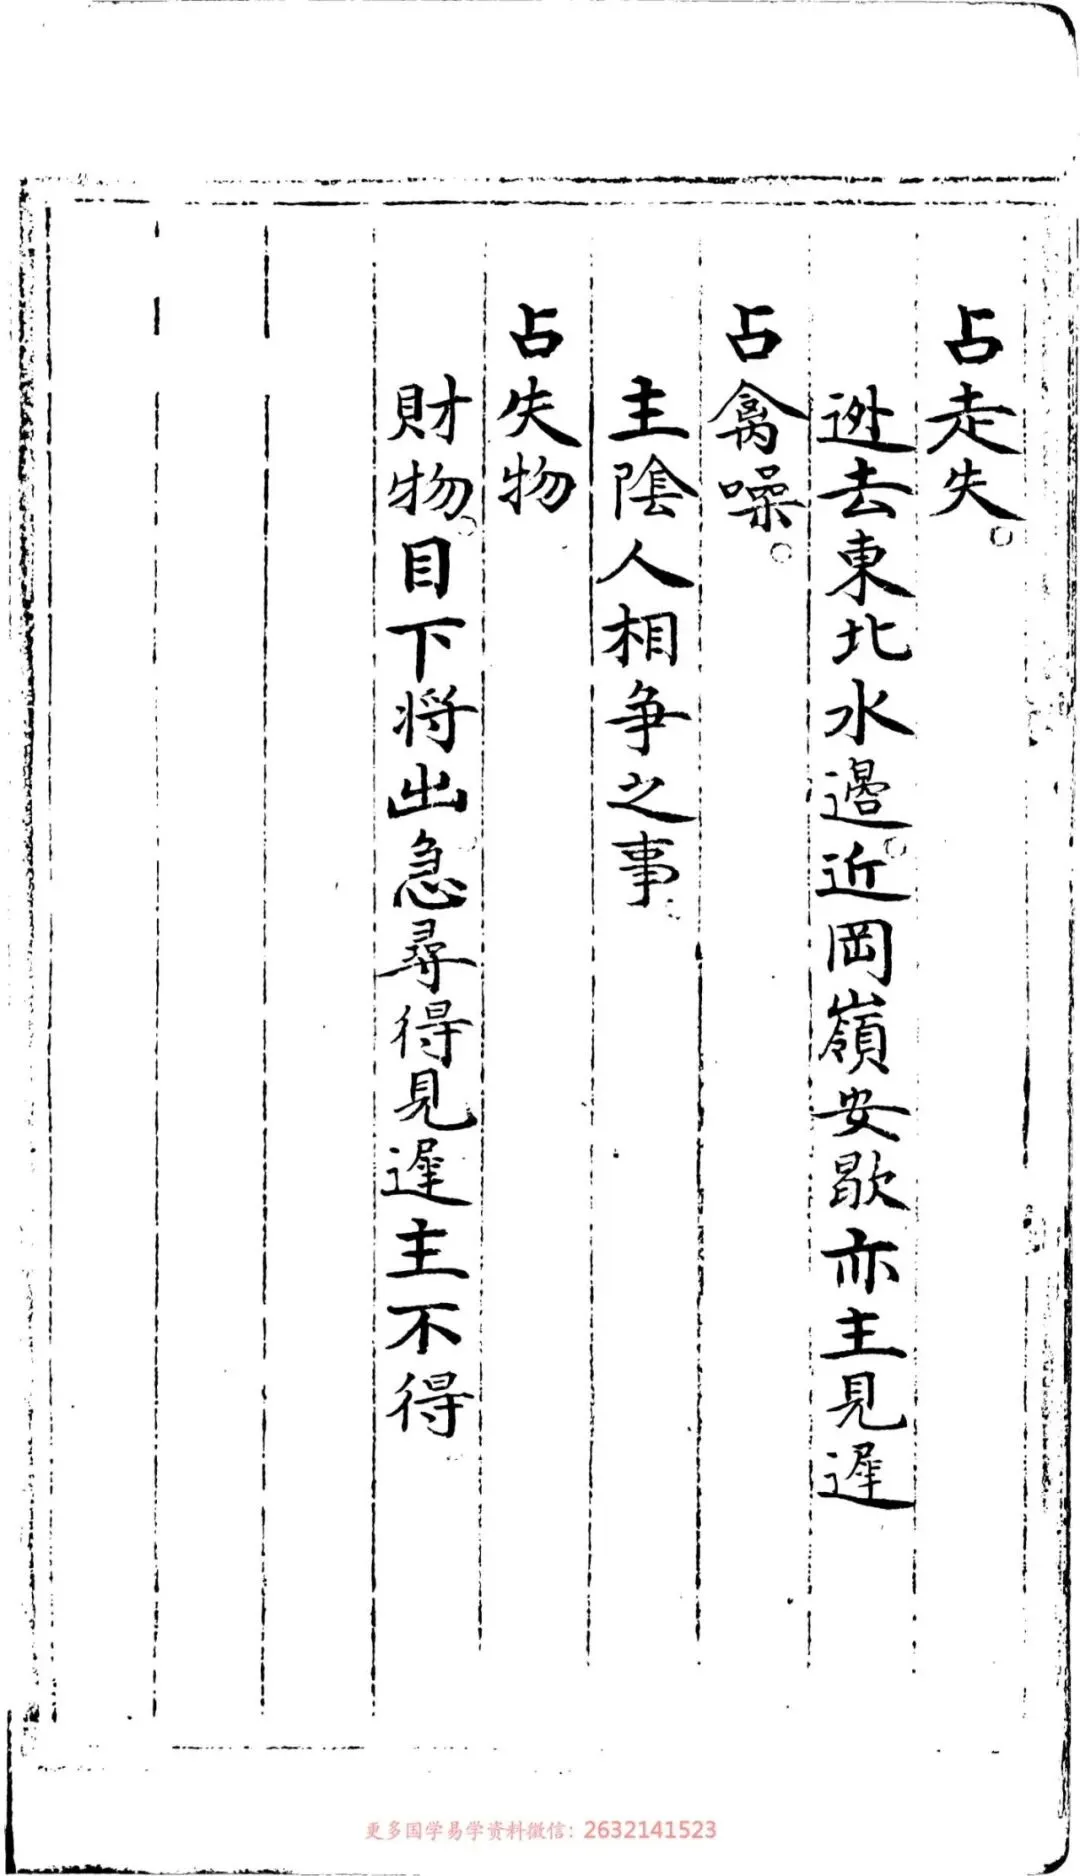 占走失。
逃去東北水邉。近岡嶺安歇亦主見遲
占禽噪。
主陰人相爭之事。
占失物
財物。目下将出。急尋得見遲主不得
更多国学易学资料微信：2632141523